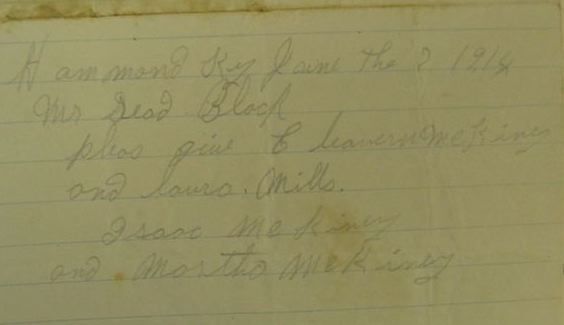 Hammond Ky June the 2 1914
Mr Dead Block
pleas give C leavern McKiney
and laura. Mills.
Isaac McKiney
and Martha McKiney